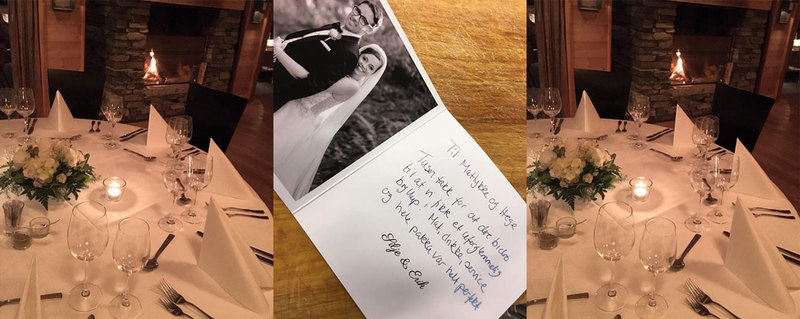 Til Matlykke og Hege
Tusen takk for at dere bidro
til at vi fikk et uforglemmelig
bryllup. Mat, drikke, service
og hele pakken var helt perfekt
Silje & Eirik